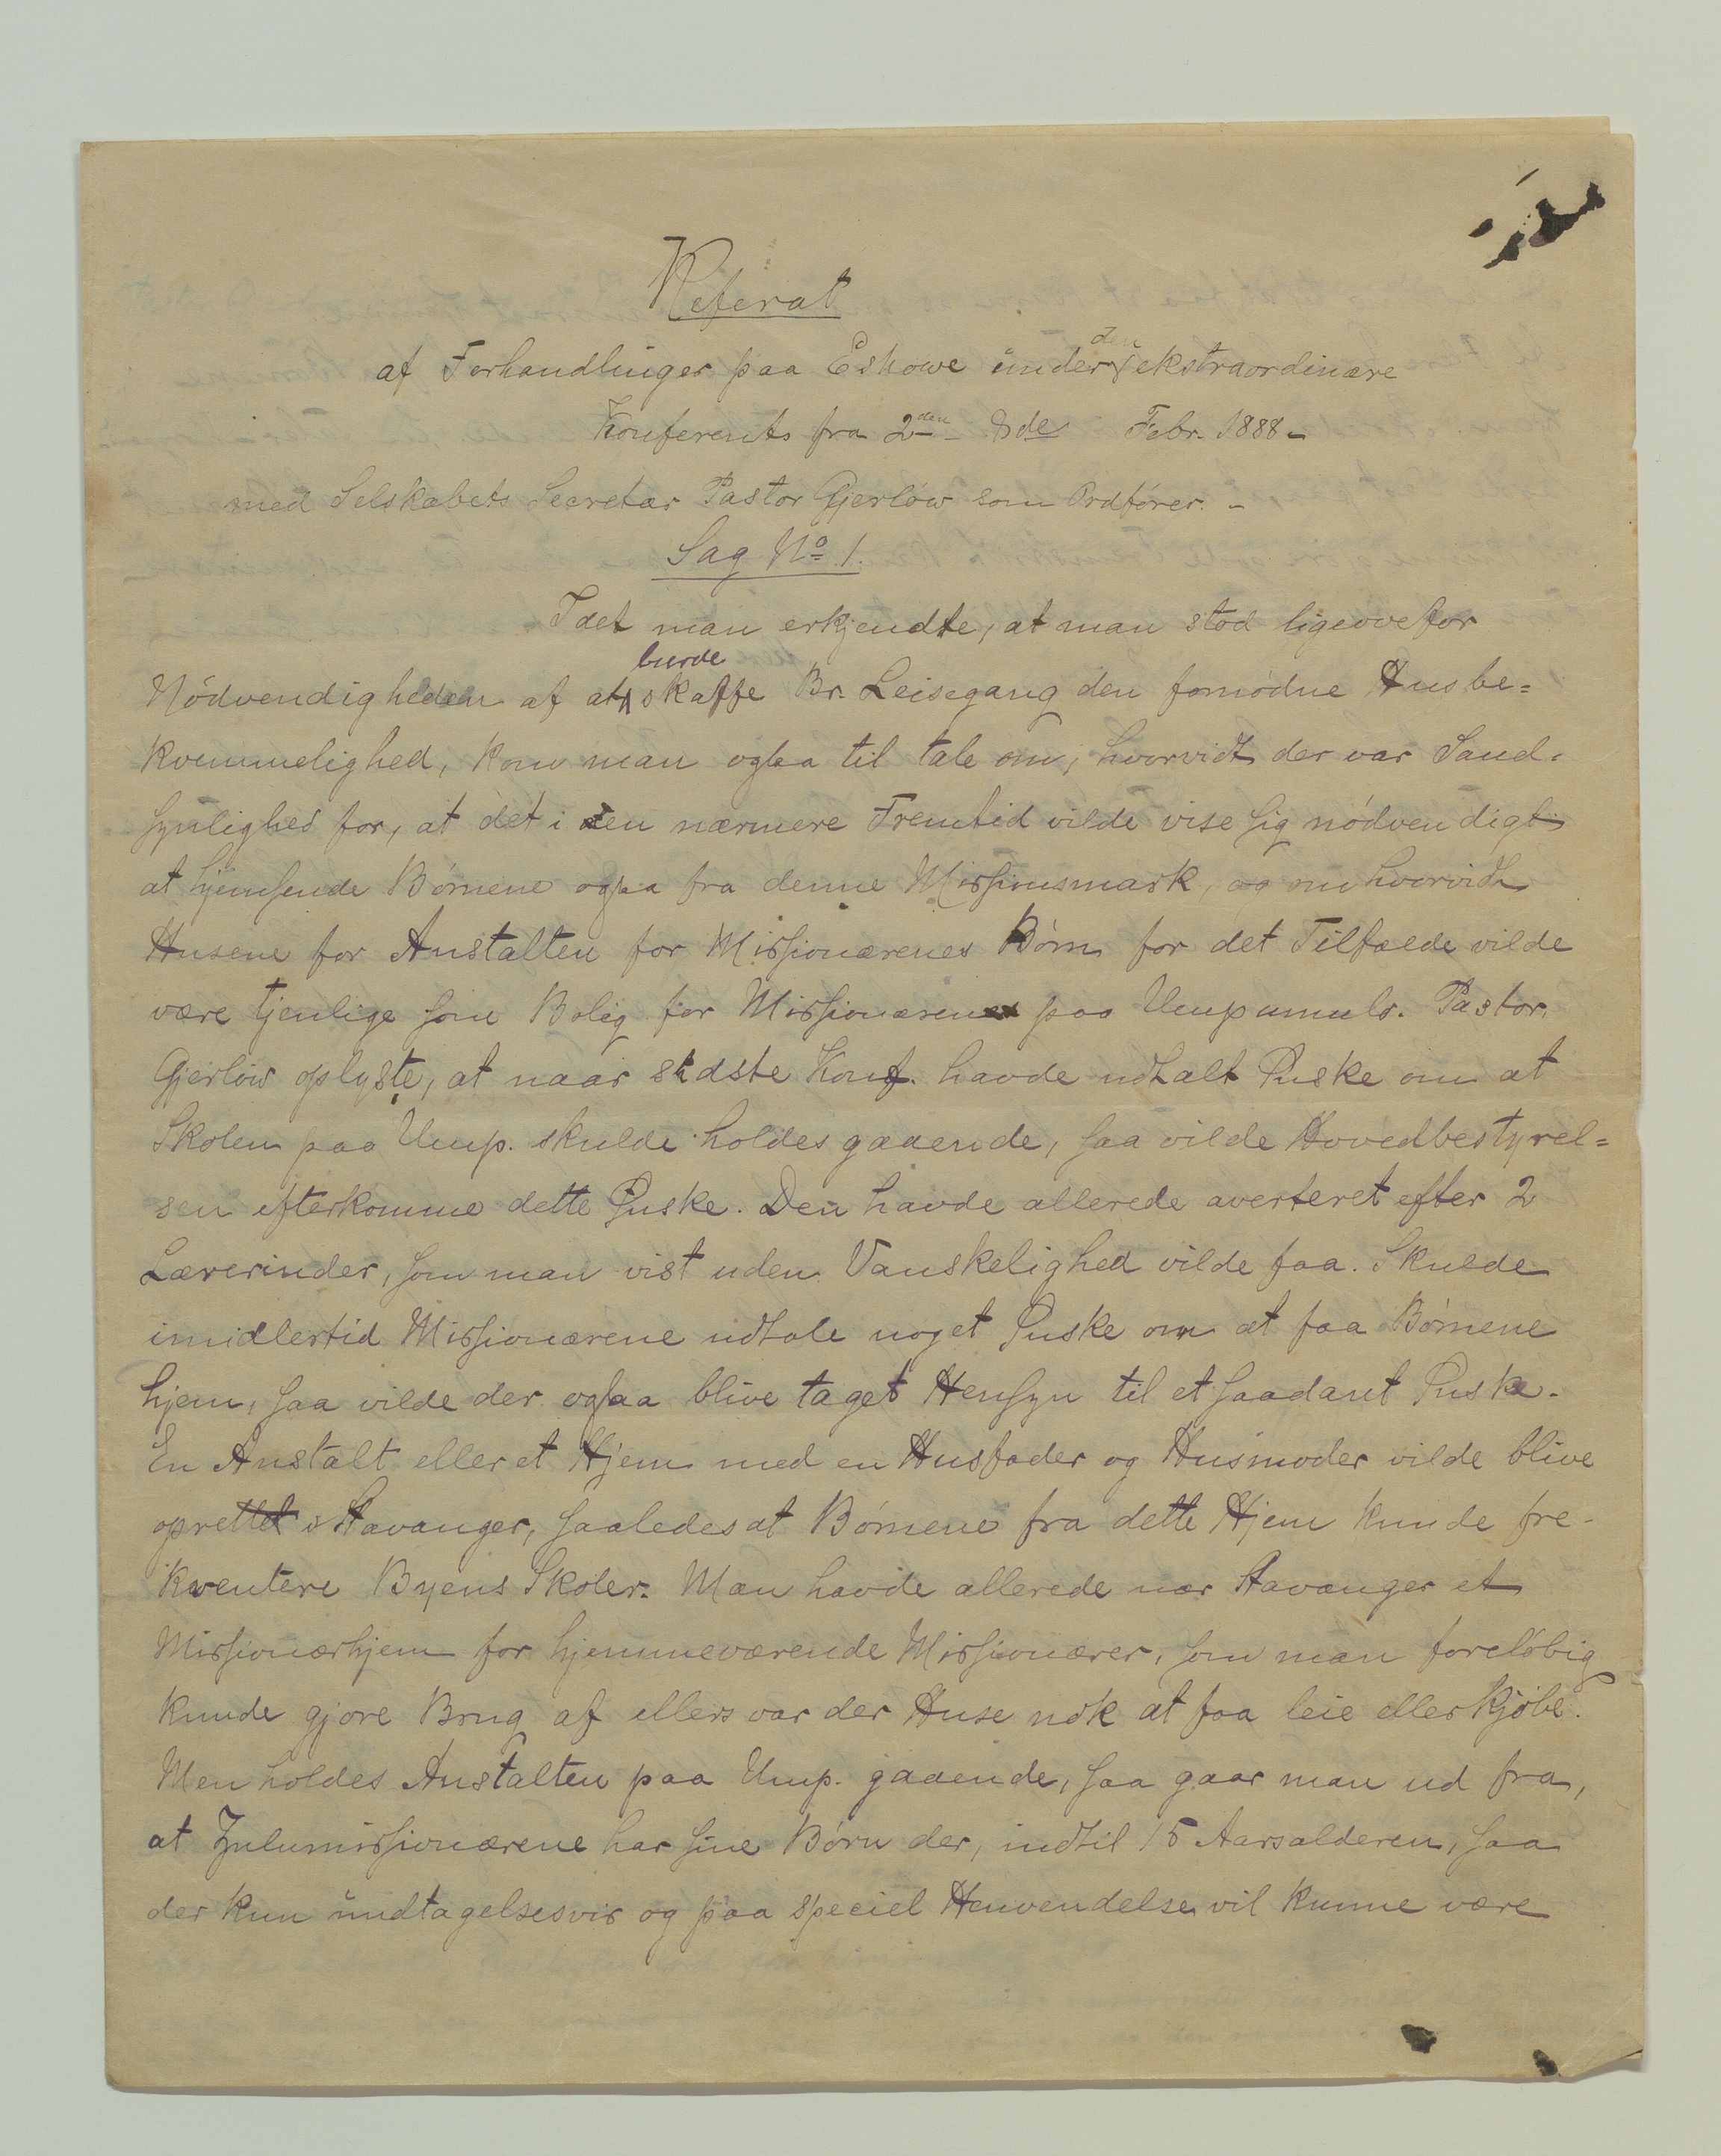 Referat
af Forhandlinger paa Eshowe under den ekstraordinære
Konferents fra 2den - 8de Febr. 1888 -
med Selskabets Secretær Pastor Gjerløw som Ordfører. -
Sag No 1.
Idet man erkjendte, at man stod ligeovefor
Nödvendigheden af at burde skaffe Br. Leisegang den fornødne Husbe=
kvemmelighed, kom man ogsaa til tale om, hvorvidt der var Sand-
synlighed for, at det i en nærmere Fremtid vilde vise sig nödvendigt
at hjemsende Börnene ogsaa fra denne Missionsmark, og om hvorvidt
Husene for Anstalten for Missionærenes Börn for det Tilfælde vilde
være tjenlige som Bolig for Missionærene paa Umpumulo. Pastor
Gjerlöw oplyste, at naar sidste Konf. havde udtalt Ønske om at
Skolen paa Ump. skulde holdes gaaende, saa vilde Hovedbestyrel=
sen efterkomme dette Ønske. Den havde allerede averteret efter 2
Lærerinder, som man vist uden Vanskelighed vilde faa. Skulde
imidlertid Missionærene udtale noget Ønske om at faa Börnene
hjem, saa vilde der ogsaa blive taget Hensyn til et saadant Ønske.
En Anstalt eller et Hjem med en Husfader og Husmoder vilde blive
oprettet i Stavanger, saaledes at Börnene fra dette Hjem kunde fre-
kventere Byens Skoler. Man havde allerede nær Stavanger et
Missionærhjem for hjemmeværende Missionærer, som man forelöbig
kunde gjöre Brug af ellers var der Huse nok at faa leie eller kjöbe.
Men holdes Anstalten paa Ump. gaaende, saa gaar man ud fra,
at Zulumissionærene har sine Börn der, indtil 15 Aarsalderen, saa
der kun undtagelsesvis og paa speciel Henvendelse vil kunne være